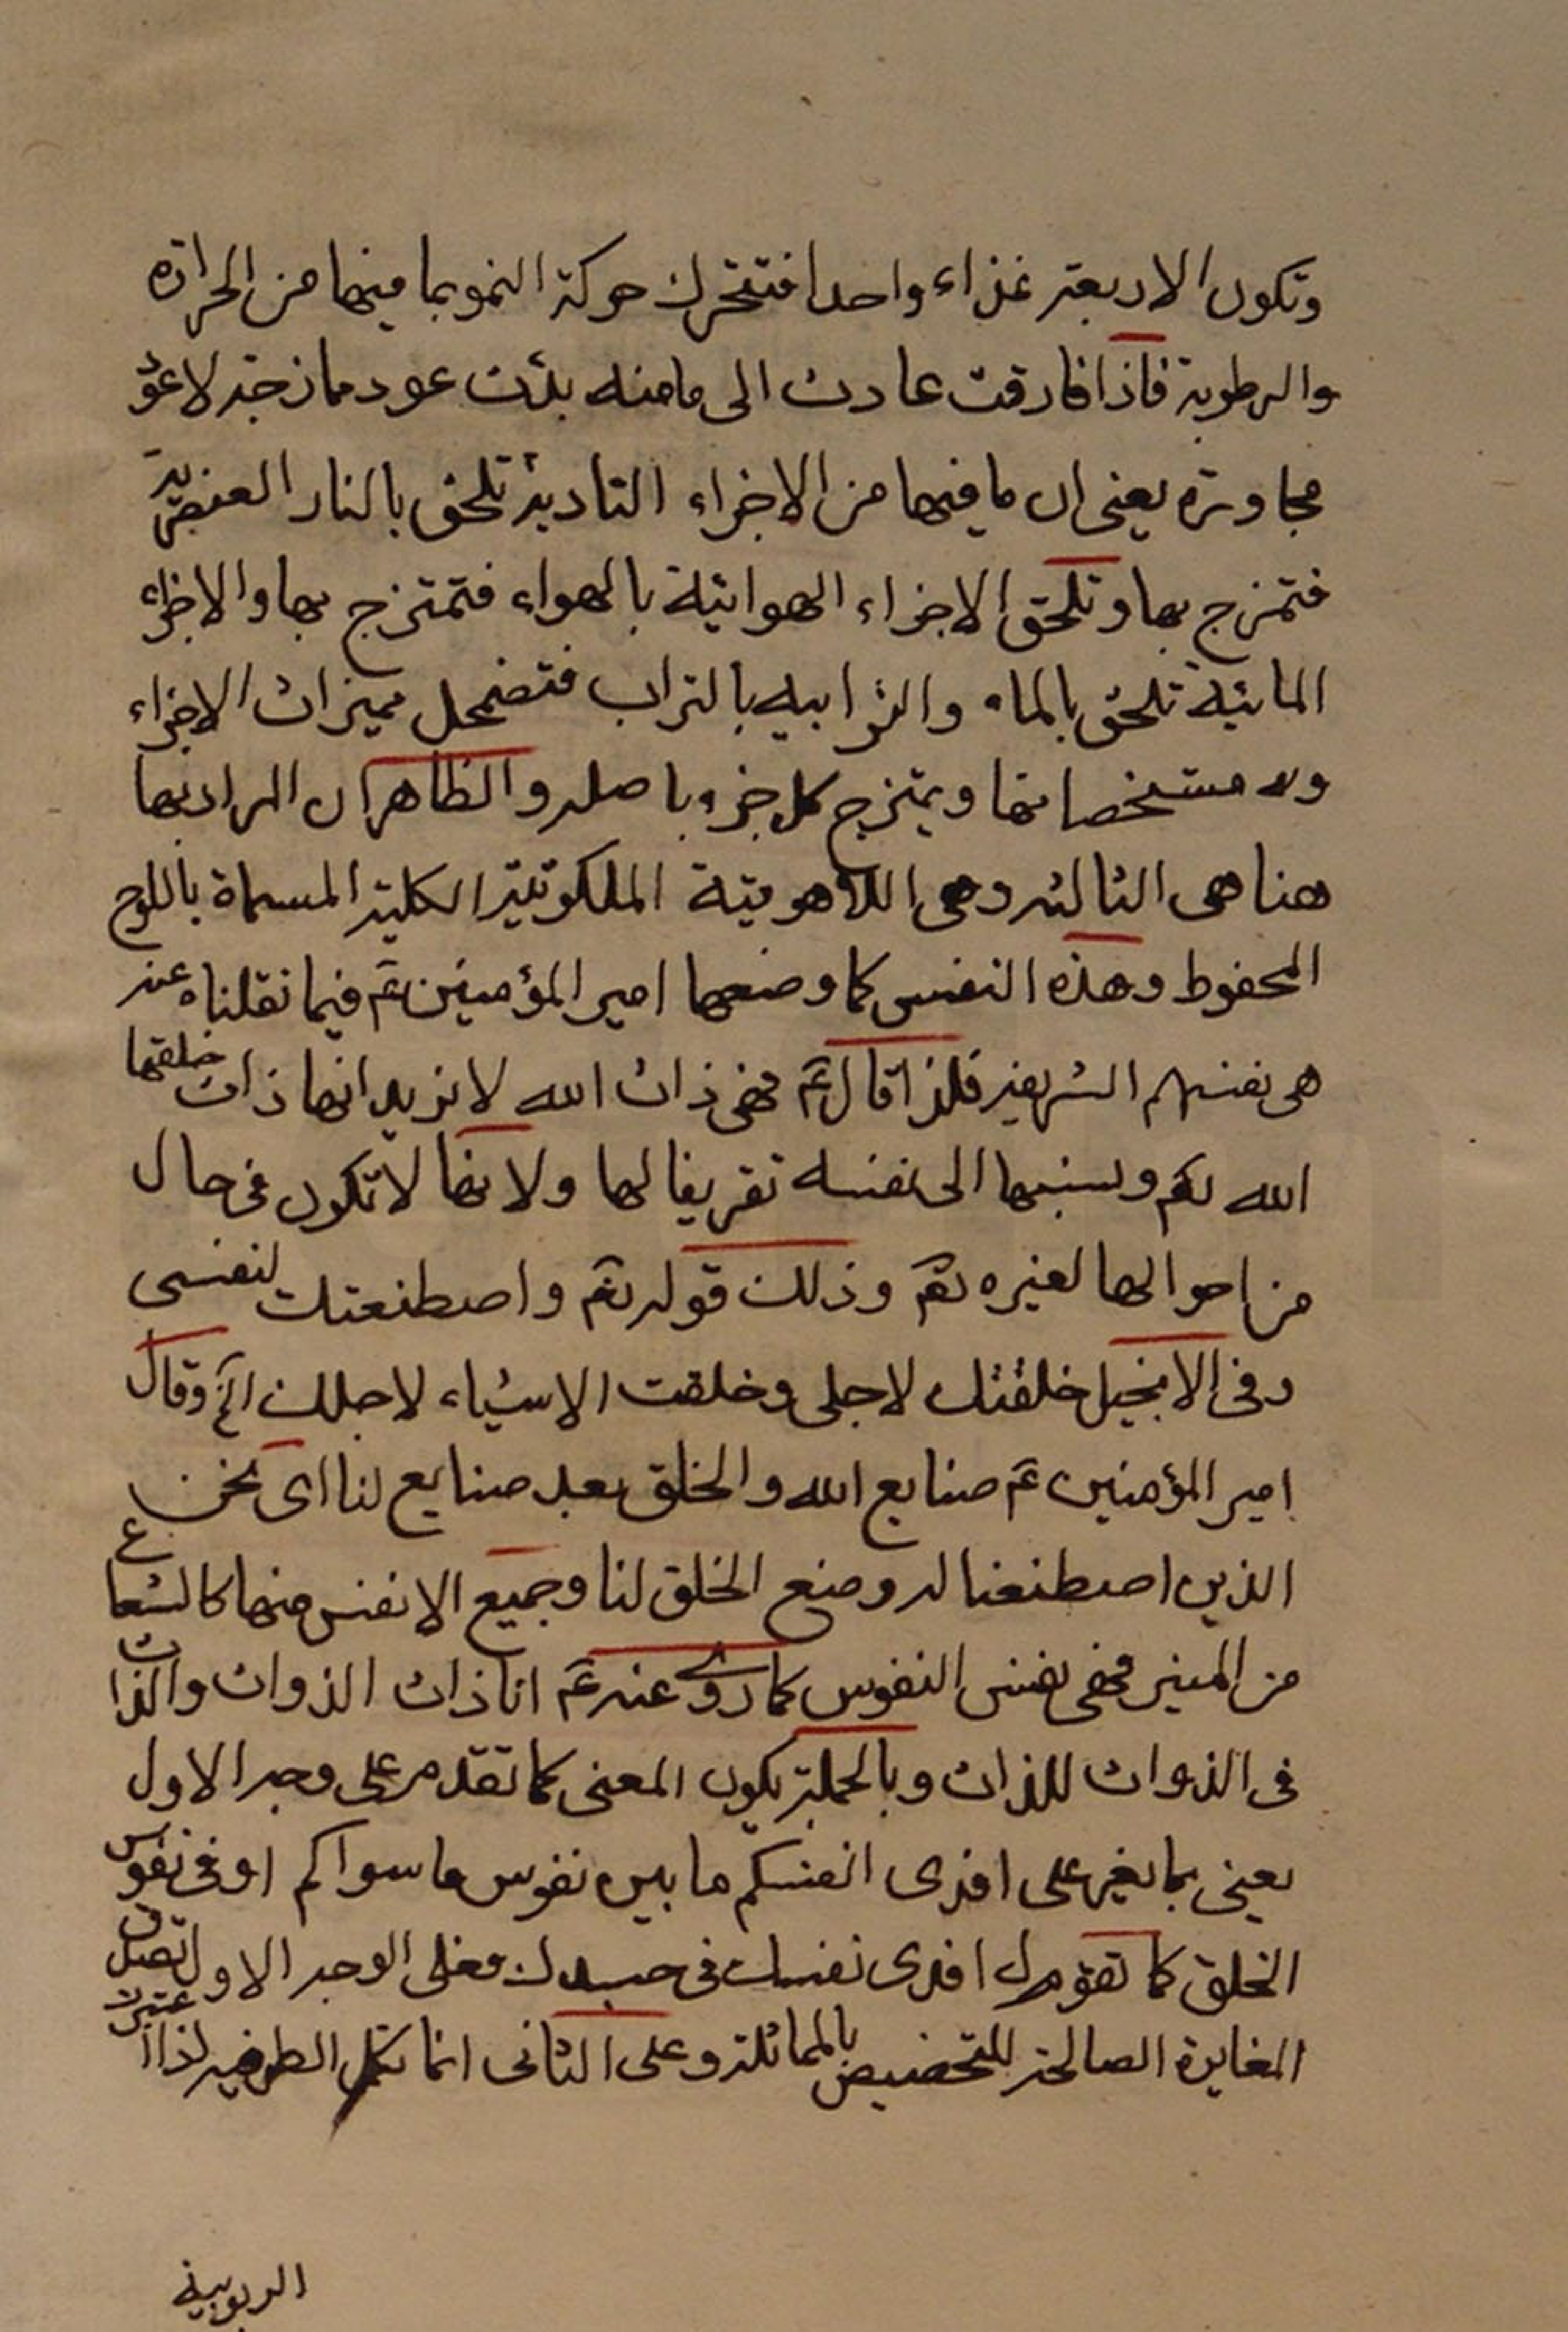 وتكون الاربعة غذاء واحدا فتتحرك حركة النمو بما فيهما من الحرارة
والرطوبة فاذا فارقت عادت الى ما منه بدئت عود ممازجة لا عود
مجاورة يعنى ان ما فيها من الاجزاء النارية تلحق بالنار العنصرية
فتمزج بها وتلحق الاجزاء الهوائية بالهواء فتمتزج بها والاجزاء
المائية تلحق بالماء والترابية بالتراب فتضمحل مميزات الاجزاء
ومشخصاتها ويمتزج كل جزء باصله والظاهر ان المراد بها
هنا هى الثالثه وهى اللاهوتية الملكوتية الكلية المسماة باللوح
المحفوظ وهذه النفس كما وصفها امير المؤمنين عم فيما نقلناه عنه
هى نفسهم الشريفه فلذا قال عم فهى ذات الله لا نريد انها ذات خلقتها
الله تعم ونسبها الى نفسه تشريفا لها ولانها لا تكون فى حال
من احوالها لغيره تعم وذلك قوله تعم واصطنعتك لنفسى
وفى الانجيل خلقتك لاجلى وخلقت الاشياء لاجلك الخ وقال
امير المؤمنين عم صنايع الله والخلق بعد صنايع لنا اى نحن
الذين اصطنعنا له وصنع الخلق لنا وجميع الانفس منها كالشعاع
من المنير فهى نفس النفوس كما روى عنه عم انا ذات الذوات والذات
فى الذوات للذات وبالجملة يكون المعنى كما تقدم على وجه الاول
يعنى بما يغير على افدى انفسكم ما بين نفوس ما سواكم او فى نفوس
الخلق كما تقول افدى نفسك فى جسدك فعلى الوجه الاول تصدق
المغايرة الصالحة للتخصيص بالمماثلة وعلى الثانى انما تكمل الظرفيه اذا اعتبرت
الربوبية